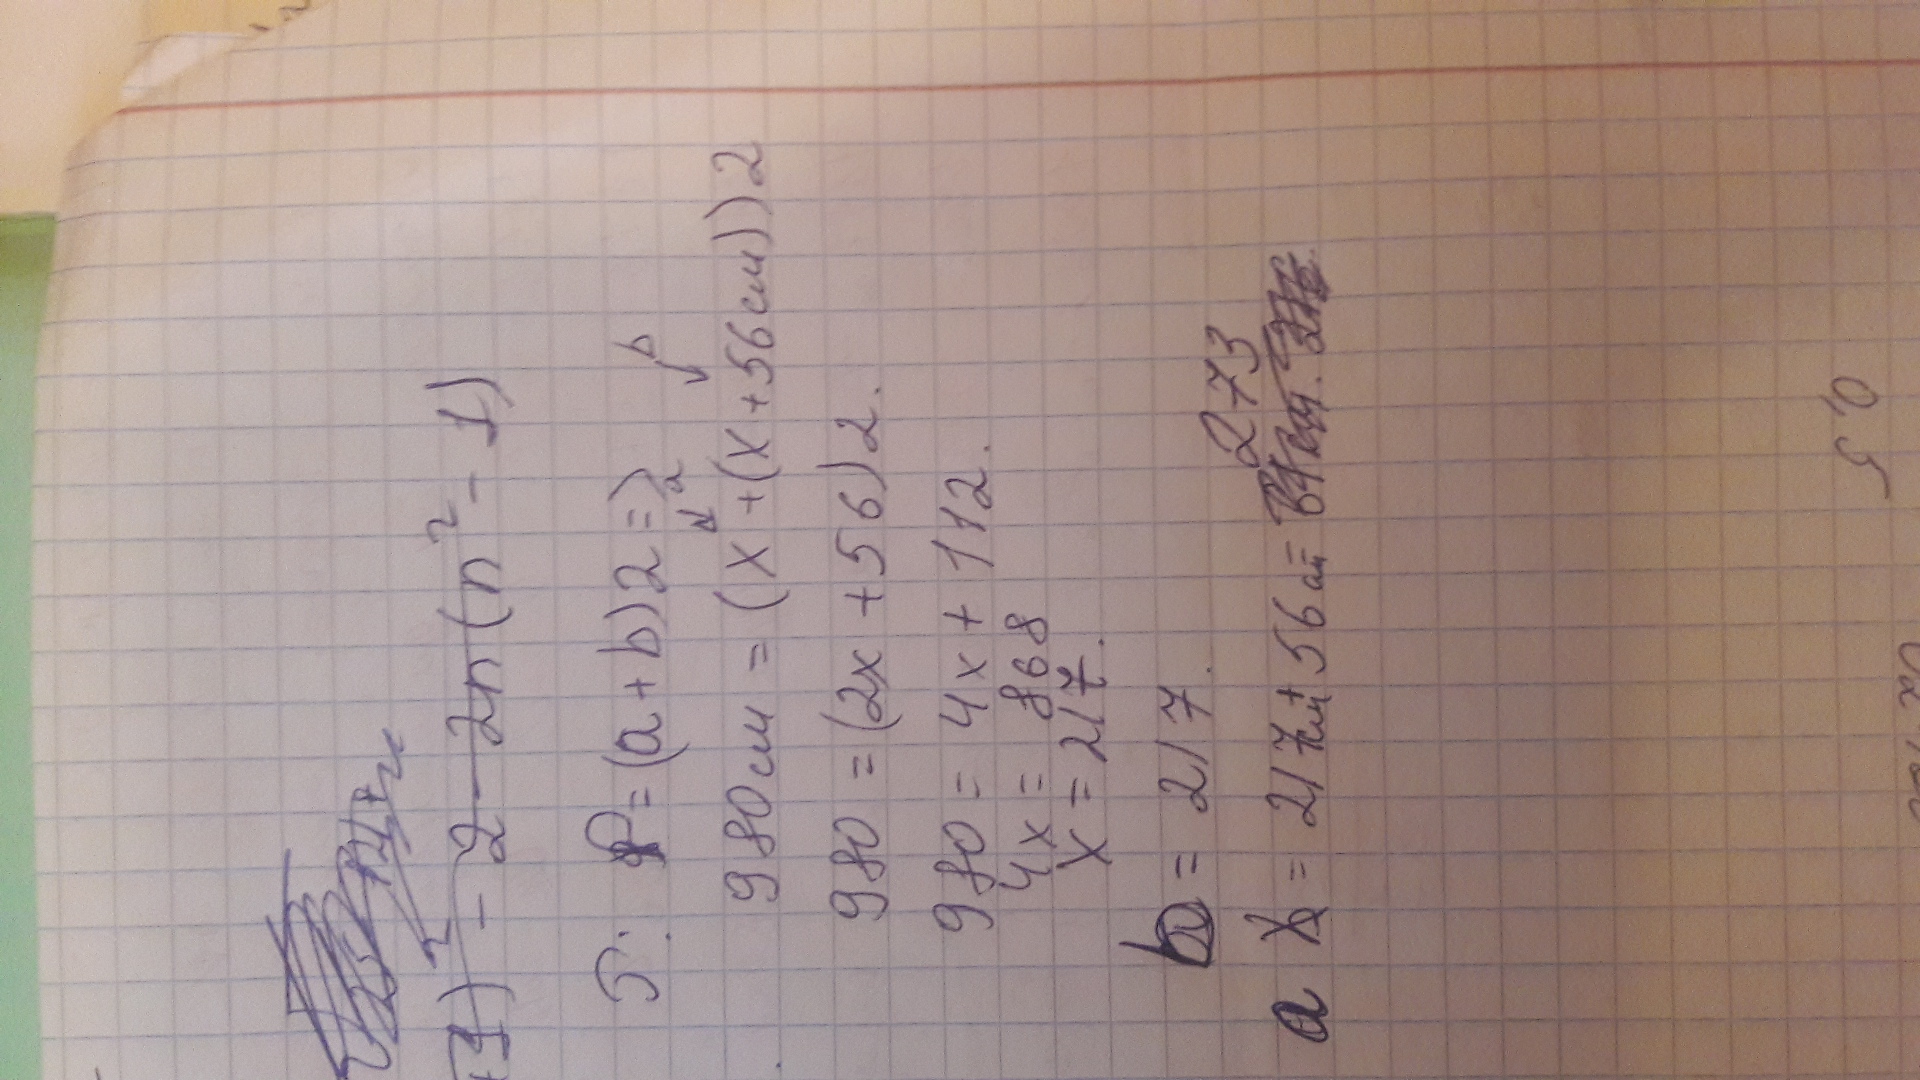 +1)² - 2 - 2n(n² - 1)
5. P = (a + b) 2 =>
a b
980 см = (x + (x + 56 см)) 2
980 = (2x + 56) 2.
980 = 4x + 112.
4x = 868
x = 217.
b = 217.
273
a = 217 см + 56 см =
0,5